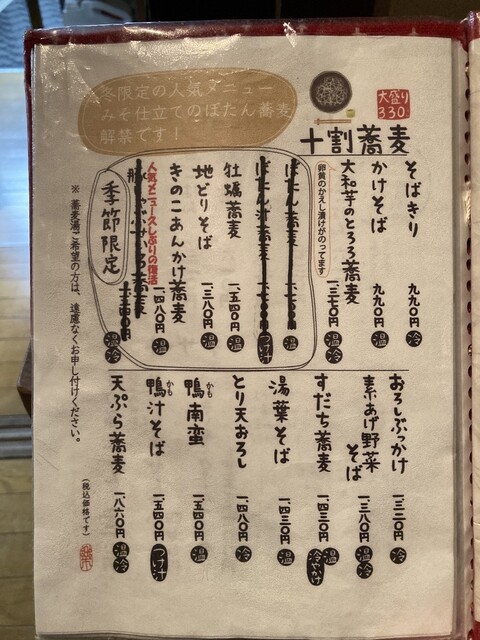 冬限定の人気メニュー
みそ仕立てのぼたん蕎麦
解禁です！
大盛り
330
十割蕎麦
そばきり 九九〇円 冷
かけそば 九九〇円 温
大和芋のとろろ蕎麦 一、三七〇円 温 冷
卵黄のかえし漬けがのってます
ぼたん蕎麦 温
ぼたん汁蕎麦 つけ汁
牡蠣蕎麦 一、五四〇円 温
地どりそば 一、三八〇円 温
きのこあんかけ蕎麦 一、四八〇円 温
人気メニュー久しぶりの復活
季節限定
温 冷
おろしぶっかけ 一、三二〇円 冷
素あげ野菜そば 一、三八〇円 温 冷
すだち蕎麦 一、四三〇円 温 冷やかけ
湯葉そば 一、四三〇円 温
とり天おろし 一、四八〇円 冷
鴨南蛮 一、五四〇円 温
かも
鴨汁そば 一、五四〇円 つけ汁
かも
天ぷら蕎麦 一、八六〇円 温 冷
(税込価格です)
※ 蕎麦湯ご希望の方は、遠慮なくお申し付けください。